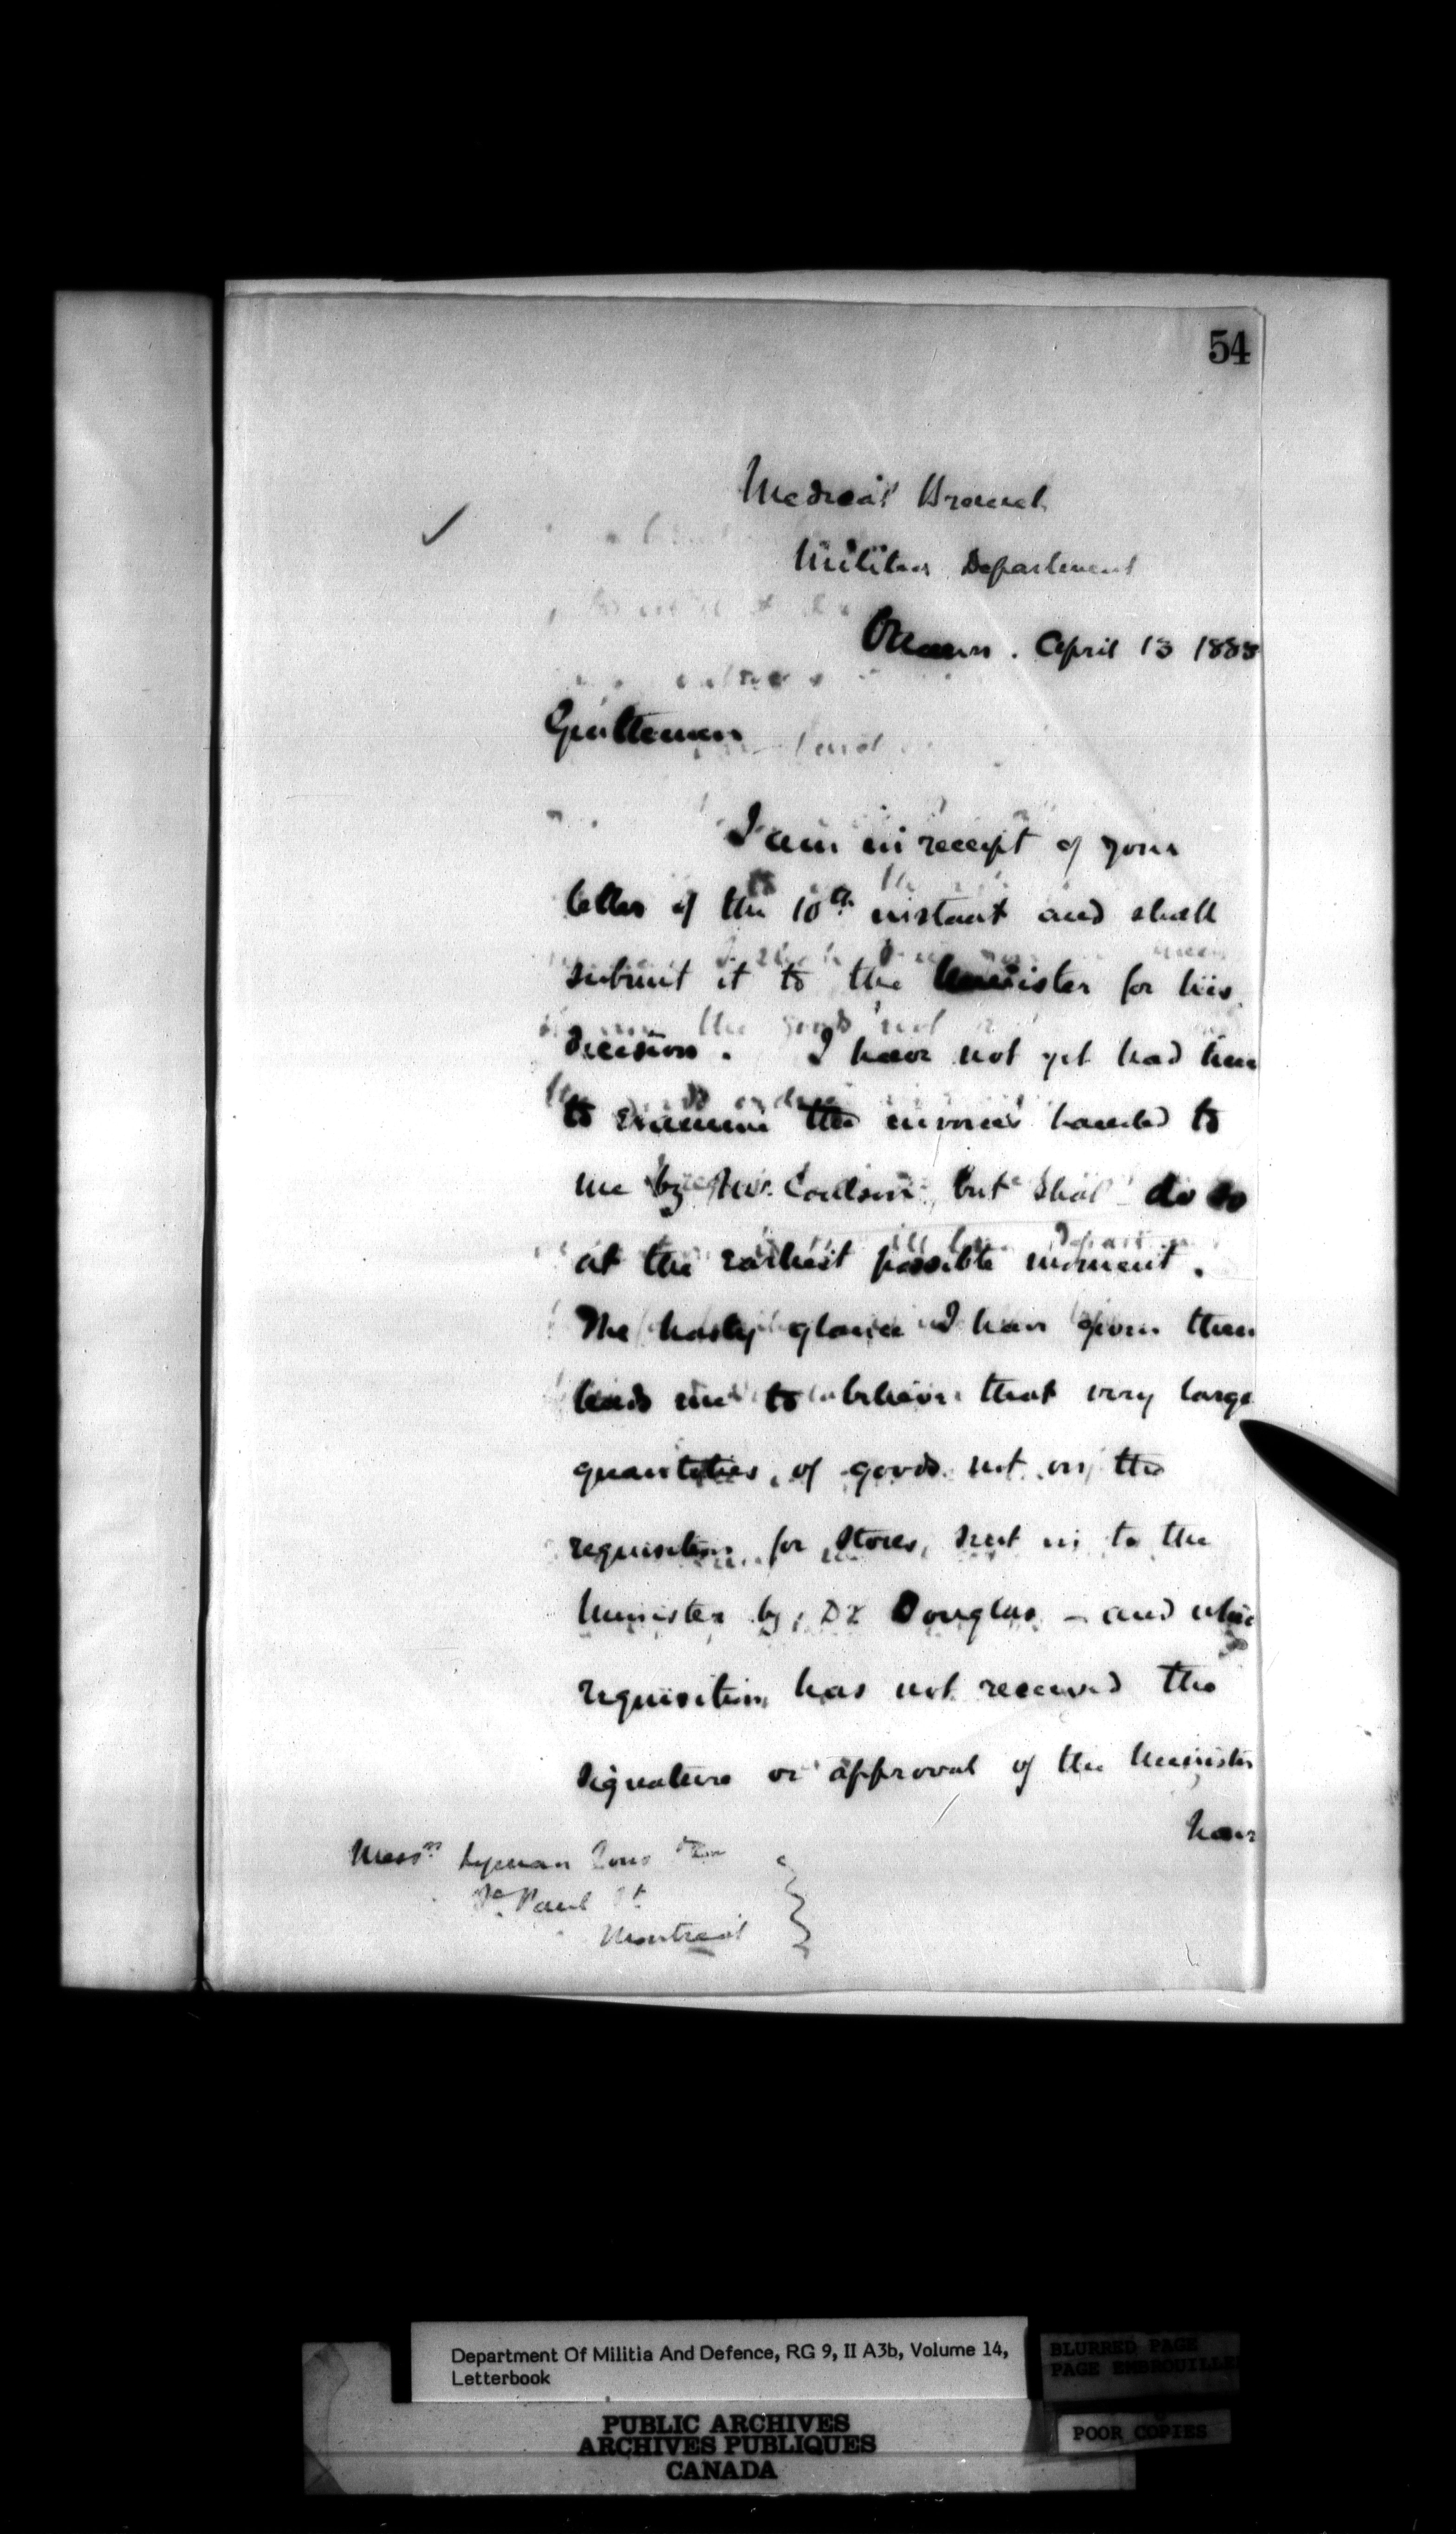 54
Medical Branch
Militia Department
Ottawa. April 13 1888
Gentlemen
I am in receipt of your
letter of the 10th instant and shall
submit it to the Minister for his
decision. I have not yet had time
to examine the invoices handed to
me by Mr. Coulson, but shall do so
at the earliest possible moment.
The hasty glance I have given them
leads me to believe that very large
quantities of goods not on the
requisition for Stores, sent in to the
Minister by Dr Douglas – and which
requisition has not received the
signature or approval of the Minister
have
Messrs Lyman Sons & Co
St. Paul St
Montreal
Department Of Militia And Defence, RG 9, II A3b, Volume 14,
Letterbook
BLURRED PAGE
PAGE EMBROUILLÉE
POOR COPIES
PUBLIC ARCHIVES
ARCHIVES PUBLIQUES
CANADA